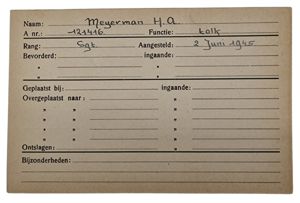 Naam: Meyerman H.A.
A nr.: 121416. Functie: tolk
Rang: Sgt. Aangesteld: 2 Juni 1945
Bevorderd: ingaande:
" "
" "
Geplaatst bij: ingaande:
Overgeplaatst naar: "
" " "
" " "
" " "
" " "
Ontslagen: "
Bijzonderheden: